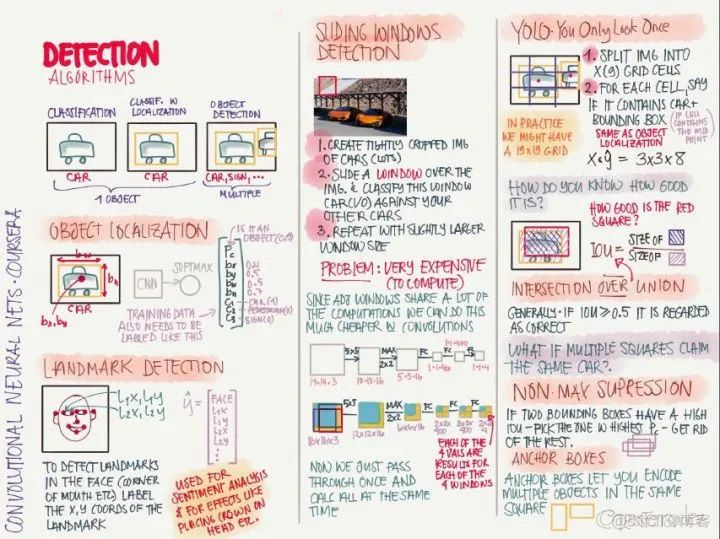 CONVOLUTIONAL NEURAL NETS · COURSERA
DETECTION
ALGORITHMS
CLASSIFICATION
CLASSIF. W
LOCALIZATION
OBJECT
DETECTION
CAR
CAR
CAR, SIGN, ...
1 OBJECT
MULTIPLE
OBJECT LOCALIZATION
IS IT AN
OBJECT (0,1)
bw
bh
bx, by
CAR
CNN
SOFTMAX
Pc
bx
by
bh
bw
C1
C2
C3
0.5
0.5
0.7
CAR (1)
PEDESTRIAN (0)
SIGN (0)
TRAINING DATA
ALSO NEEDS TO BE
LABLED LIKE THIS
LANDMARK DETECTION
L1X, L1Y
L2X, L2Y
ŷ =
FACE
L1X
L1Y
L2X
L2Y
TO DETECT LANDMARKS
IN THE FACE (CORNER
OF MOUTH ETC) LABEL
THE X,Y COORDS OF THE
LANDMARK
USED FOR
SENTIMENT ANALYSIS
& FOR EFFECTS LIKE
PLACING CROWN ON
HEAD ETC.
SLIDING WINDOWS
DETECTION
1. CREATE TIGHTLY CROPPED IMG
OF CARS (LOTS)
2. SLIDE A WINDOW OVER THE
IMG. & CLASSIFY THIS WINDOW
CAR (1/0) AGAINST YOUR
OTHER CARS
3. REPEAT WITH SLIGHTLY LARGER
WINDOW SIZE
PROBLEM: VERY EXPENSIVE
(TO COMPUTE)
WINDOWS SHARE A LOT OF
THE COMPUTATIONS WE CAN DO THIS
MUCH CHEAPER W CONVOLUTIONS
5×5
MAX
2×2
FC
FC
14×14×3
10×10×16
5×5×16
1×1×400
1×1×400
1×1×4
5×5
MAX
2×2
FC
FC
FC
16×16×3
12×12×16
2×2×
400
2×2×
400
EACH OF THE
4 VALS ARE
RESULTS FOR
EACH OF THE
4 WINDOWS
NOW WE JUST PASS
THROUGH ONCE AND
CALC ALL AT THE SAME
TIME
YOLO · You Only Look Once
1. SPLIT IMG INTO
X(9) GRID CELLS
2. FOR EACH CELL, SAY
IF IT CONTAINS CAR +
BOUNDING BOX
(IF CELL
CONTAINS
THE MID
POINT)
SAME AS OBJECT
LOCALIZATION
IN PRACTICE
WE MIGHT HAVE
A 19×19 GRID
= 3×3×8
HOW DO YOU KNOW HOW GOOD
IT IS?
HOW GOOD IS THE RED
SQUARE?
IOU =
SIZE OF
SIZE OF
INTERSECTION OVER UNION
GENERALLY · IF IOU ≥ 0.5 IT IS REGARDED
AS CORRECT
WHAT IF MULTIPLE SQUARES CLAIM
THE SAME CAR?
NON-MAX SUPRESSION
IF TWO BOUNDING BOXES HAVE A HIGH
IOU - PICK THE ONE W HIGHEST Pc - GET RID
OF THE REST.
ANCHOR BOXES
ANCHOR BOXES LET YOU ENCODE
MULTIPLE OBJECTS IN THE SAME
SQUARE